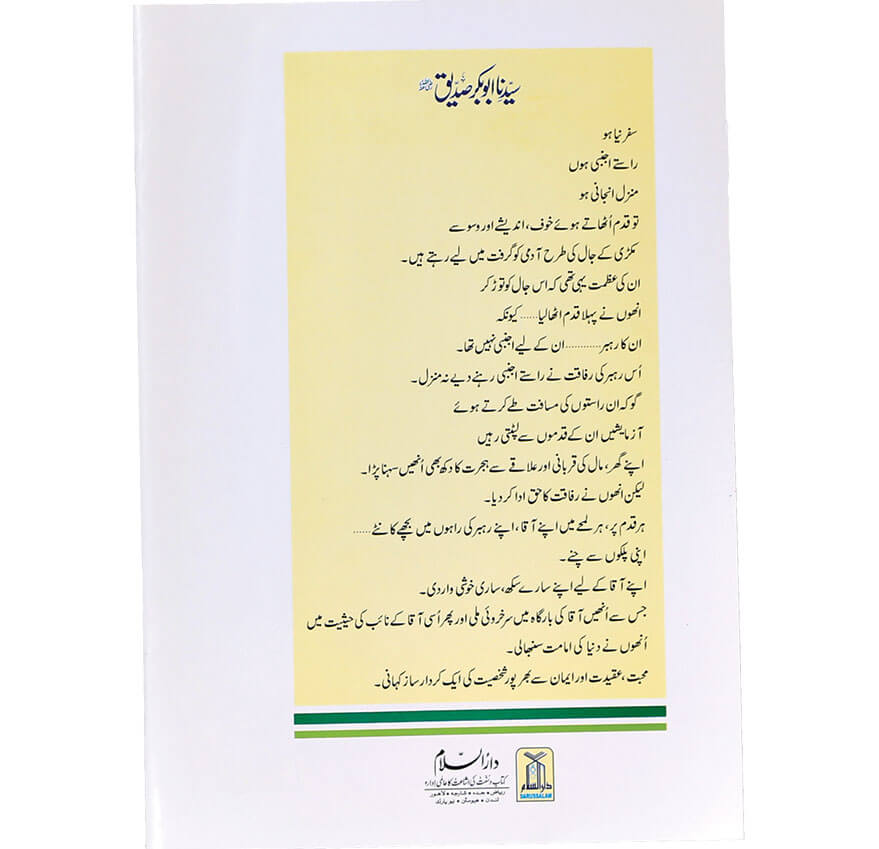 سیّدنا ابوبکر صدّیق رضی اللہ عنہ
سفر نیا ہو
راستے اجنبی ہوں
منزل انجانی ہو
تو قدم اُٹھاتے ہوئے خوف، اندیشے اور وسوسے
مکڑی کے جال کی طرح آدمی کو گرفت میں لیے رہتے ہیں۔
ان کی عظمت یہی تھی کہ اس جال کو توڑ کر
انھوں نے پہلا قدم اٹھا لیا...... کیونکہ
ان کا رہبر............ ان کے لیے اجنبی نہیں تھا۔
اُس رہبر کی رفاقت نے راستے اجنبی رہنے دیے نہ منزل۔
گو کہ ان راستوں کی مسافت طے کرتے ہوئے
آزمایشیں ان کے قدموں سے لپٹتی رہیں
اپنے گھر، مال کی قربانی اور علاقے سے ہجرت کا دکھ بھی اُنھیں سہنا پڑا۔
لیکن انھوں نے رفاقت کا حق ادا کر دیا۔
ہر قدم پر، ہر لمحے میں اپنے آقا، اپنے رہبر کی راہوں میں بچھے کانٹے......
اپنی پلکوں سے چنے۔
اپنے آقا کے لیے اپنے سارے سکھ، ساری خوشی وار دی۔
جس سے اُنھیں آقا کی بارگاہ میں سرخروئی ملی اور پھر اُسی آقا کے نائب کی حیثیت میں
اُنھوں نے دنیا کی امامت سنبھالی۔
محبت، عقیدت اور ایمان سے بھرپور شخصیت کی ایک کردار ساز کہانی۔
دارُالسّلام
کتاب و سنّت کی اشاعت کا عالمی ادارہ
ریاض • جدہ • شارجہ • لاہور
لندن • ہیوسٹن • نیو یارک
دارالسلام
DARUSSALAM